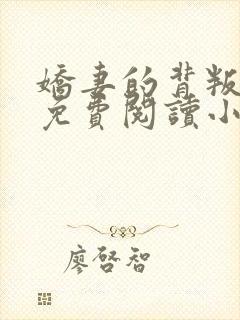 嬌妻的背叛
免費閱讀小
廖啓智